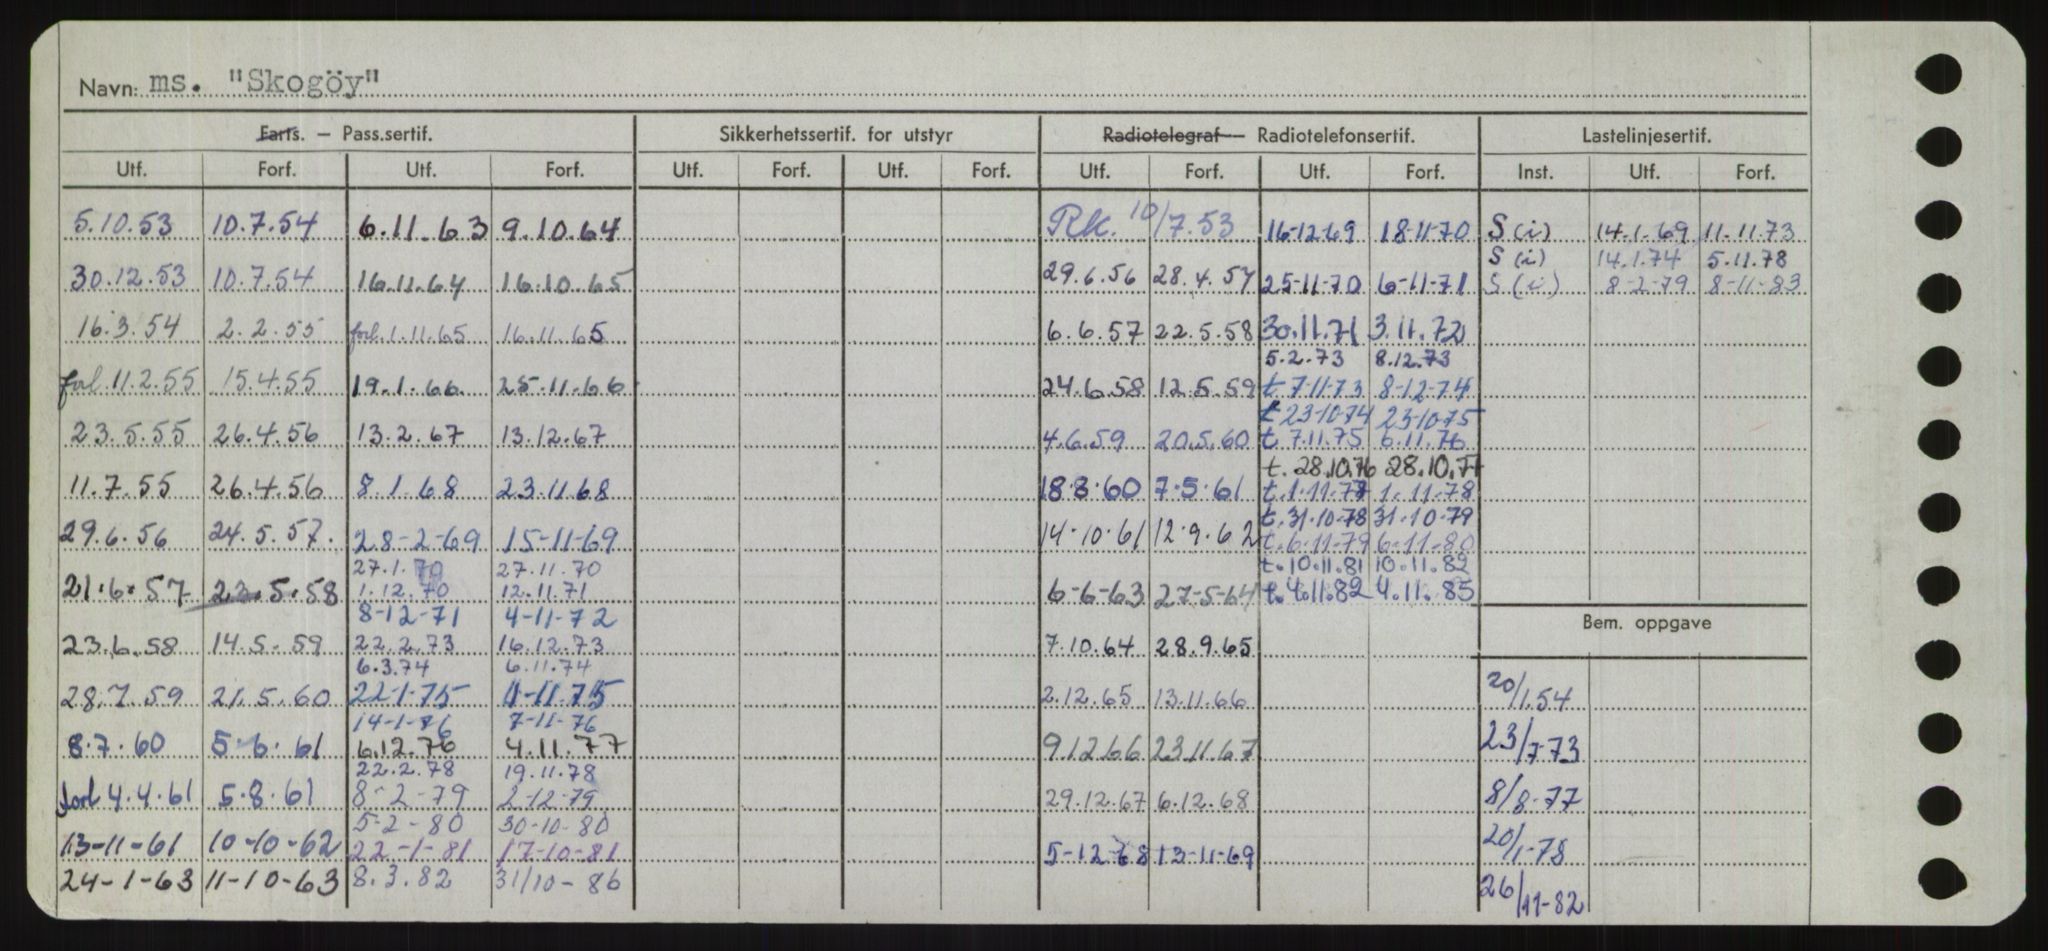 Navn: ms. "Skogöy"
Farts. — Pass.sertif. Sikkerhetssertif. for utstyr Radiotelegraf — Radiotelefonsertif. Lastelinjesertif.
Utf. Forf. Utf. Forf. Utf. Forf. Utf. Forf. Utf. Forf. Utf. Forf. Inst. Utf. Forf.
5.10.53 10.7.54 6.11.63 9.10.64 Rk. 10/7.53 16-12-69 18-11-70 S (i) 14.1.69 11.11.73
S (i) 14.1.74 5.11.78
30.12.53 10.7.54 16.11.64 16.10.65 29.6.56 28.4.57 25-11-70 6-11-71 S (i) 8-2-79 8-11-83
16.3.54 2.2.55 forl.1.11.65 16.11.65 6.6.57 22.5.58 30.11.71 3.11.72
5.2.73 8.12.73
forl 11.2.55 15.4.55 19.1.66 25.11.66 24.6.58 12.5.59 t 7-11-73 8-12-74
t 23-10-74 23-10-75
23.5.55 26.4.56 13.2.67 13.12.67 4.6.59 20.5.60 t. 7.11.75 6.11.76
t. 28.10.76 28.10.77
11.7.55 26.4.56 8.1.68 23.11.68 18.8.60 7.5.61 t.1.11.77 1.11.78
t.31-10-78 31-10-79
29.6.56 24.5.57. 28-2-69 15-11-69 14-10-61 12.9.62 t.6-11-79 6-11-80
27.1.70 27.11.70 t.10.11.81 10.11.82
21.6.57 23.5.58 1.12.70 12.11.71 6-6-63 27-5-64 t.4.11.82 4.11.85
8-12-71 4-11-72
Bem. oppgave
23.6.58 14.5.59 22.2.73 16.12.73 7.10.64 28.9.65
6.3.74 6.11.74
28.7.59 21.5.60 22-1-75 11-11-75 2.12.65 13.11.66 20/1.54
14-1-76 7-11-76
8.7.60 5.6.61 6.12.76 4.11.77 9.12.66 23.11.67 23/7-73
22.2.78 19.11.78
forl 4.4.61 5.8.61 8-2-79 2-12-79 29.12.67 6.12.68 8/8-77
5-2-80 30-10-80
13-11-61 10-10-62 22-1-81 17-10-81 5-12-68 13-11-69 20/1-78
24-1-63 11-10-63 8.3.82 31/10-86 26/11-82